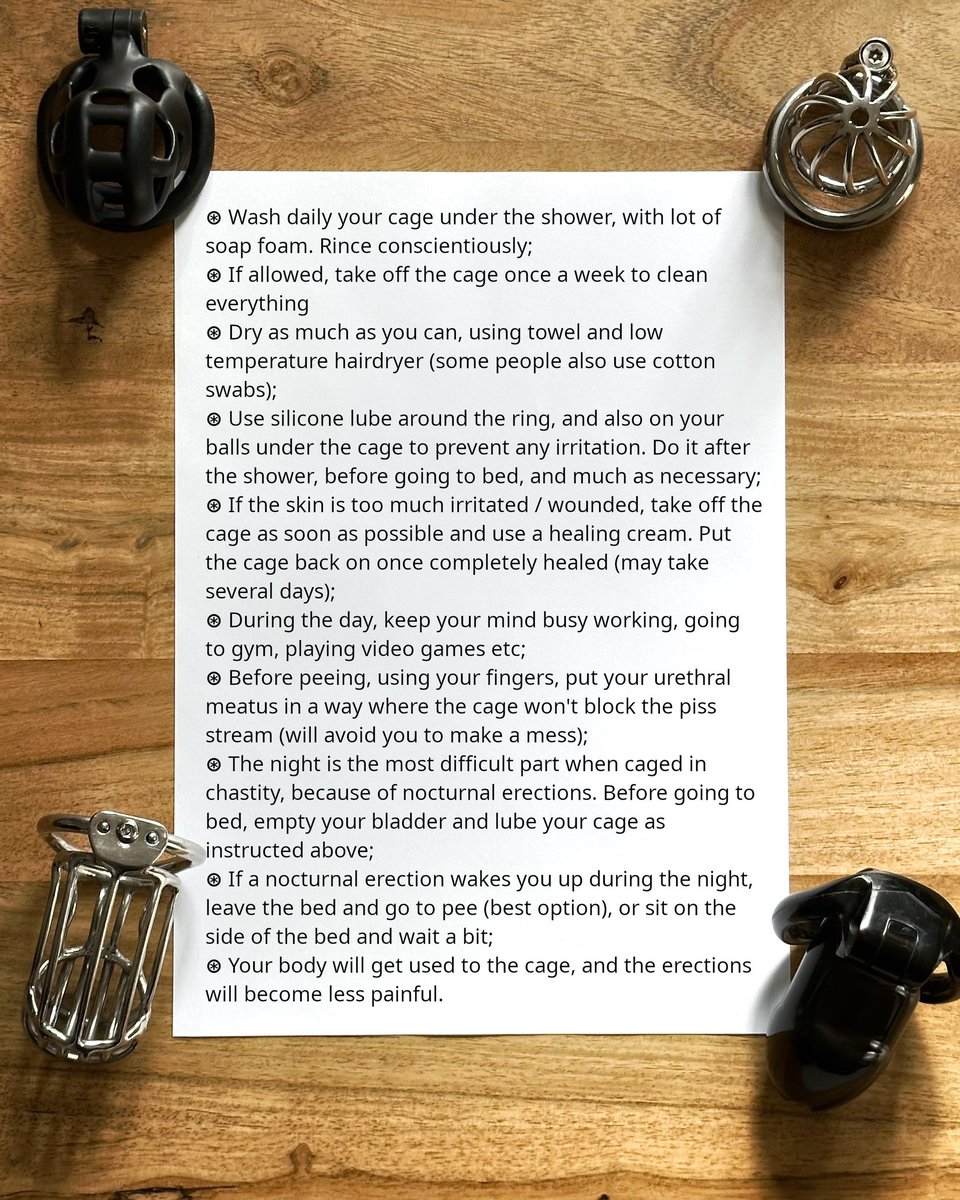 ⊛ Wash daily your cage under the shower, with lot of
soap foam. Rince conscientiously;
⊛ If allowed, take off the cage once a week to clean
everything
⊛ Dry as much as you can, using towel and low
temperature hairdryer (some people also use cotton
swabs);
⊛ Use silicone lube around the ring, and also on your
balls under the cage to prevent any irritation. Do it after
the shower, before going to bed, and much as necessary;
⊛ If the skin is too much irritated / wounded, take off the
cage as soon as possible and use a healing cream. Put
the cage back on once completely healed (may take
several days);
⊛ During the day, keep your mind busy working, going
to gym, playing video games etc;
⊛ Before peeing, using your fingers, put your urethral
meatus in a way where the cage won't block the piss
stream (will avoid you to make a mess);
⊛ The night is the most difficult part when caged in
chastity, because of nocturnal erections. Before going to
bed, empty your bladder and lube your cage as
instructed above;
⊛ If a nocturnal erection wakes you up during the night,
leave the bed and go to pee (best option), or sit on the
side of the bed and wait a bit;
⊛ Your body will get used to the cage, and the erections
will become less painful.